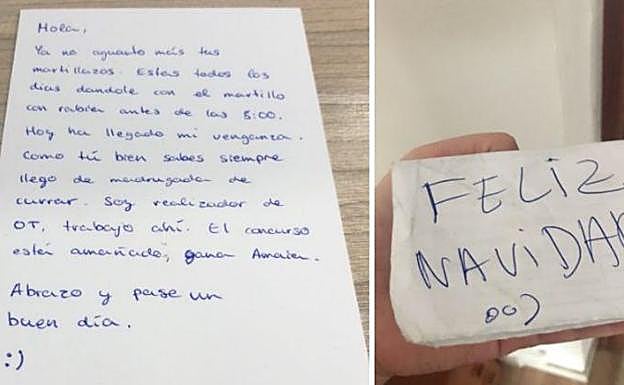 Hola,
Ya no aguanto más tus
martillazos. Estas todos los
días dandole con el martillo
con rabia antes de las 8:00.
Hoy ha llegado mi venganza.
Como tú bien sabes siempre
llego de madrugada de
currar. Soy realizador de
OT, trabajo ahí. El concurso
está amañado, gana Amaia.
Abrazo y pase un
buen día.
:)
FELIZ
NAVIDAD
:)